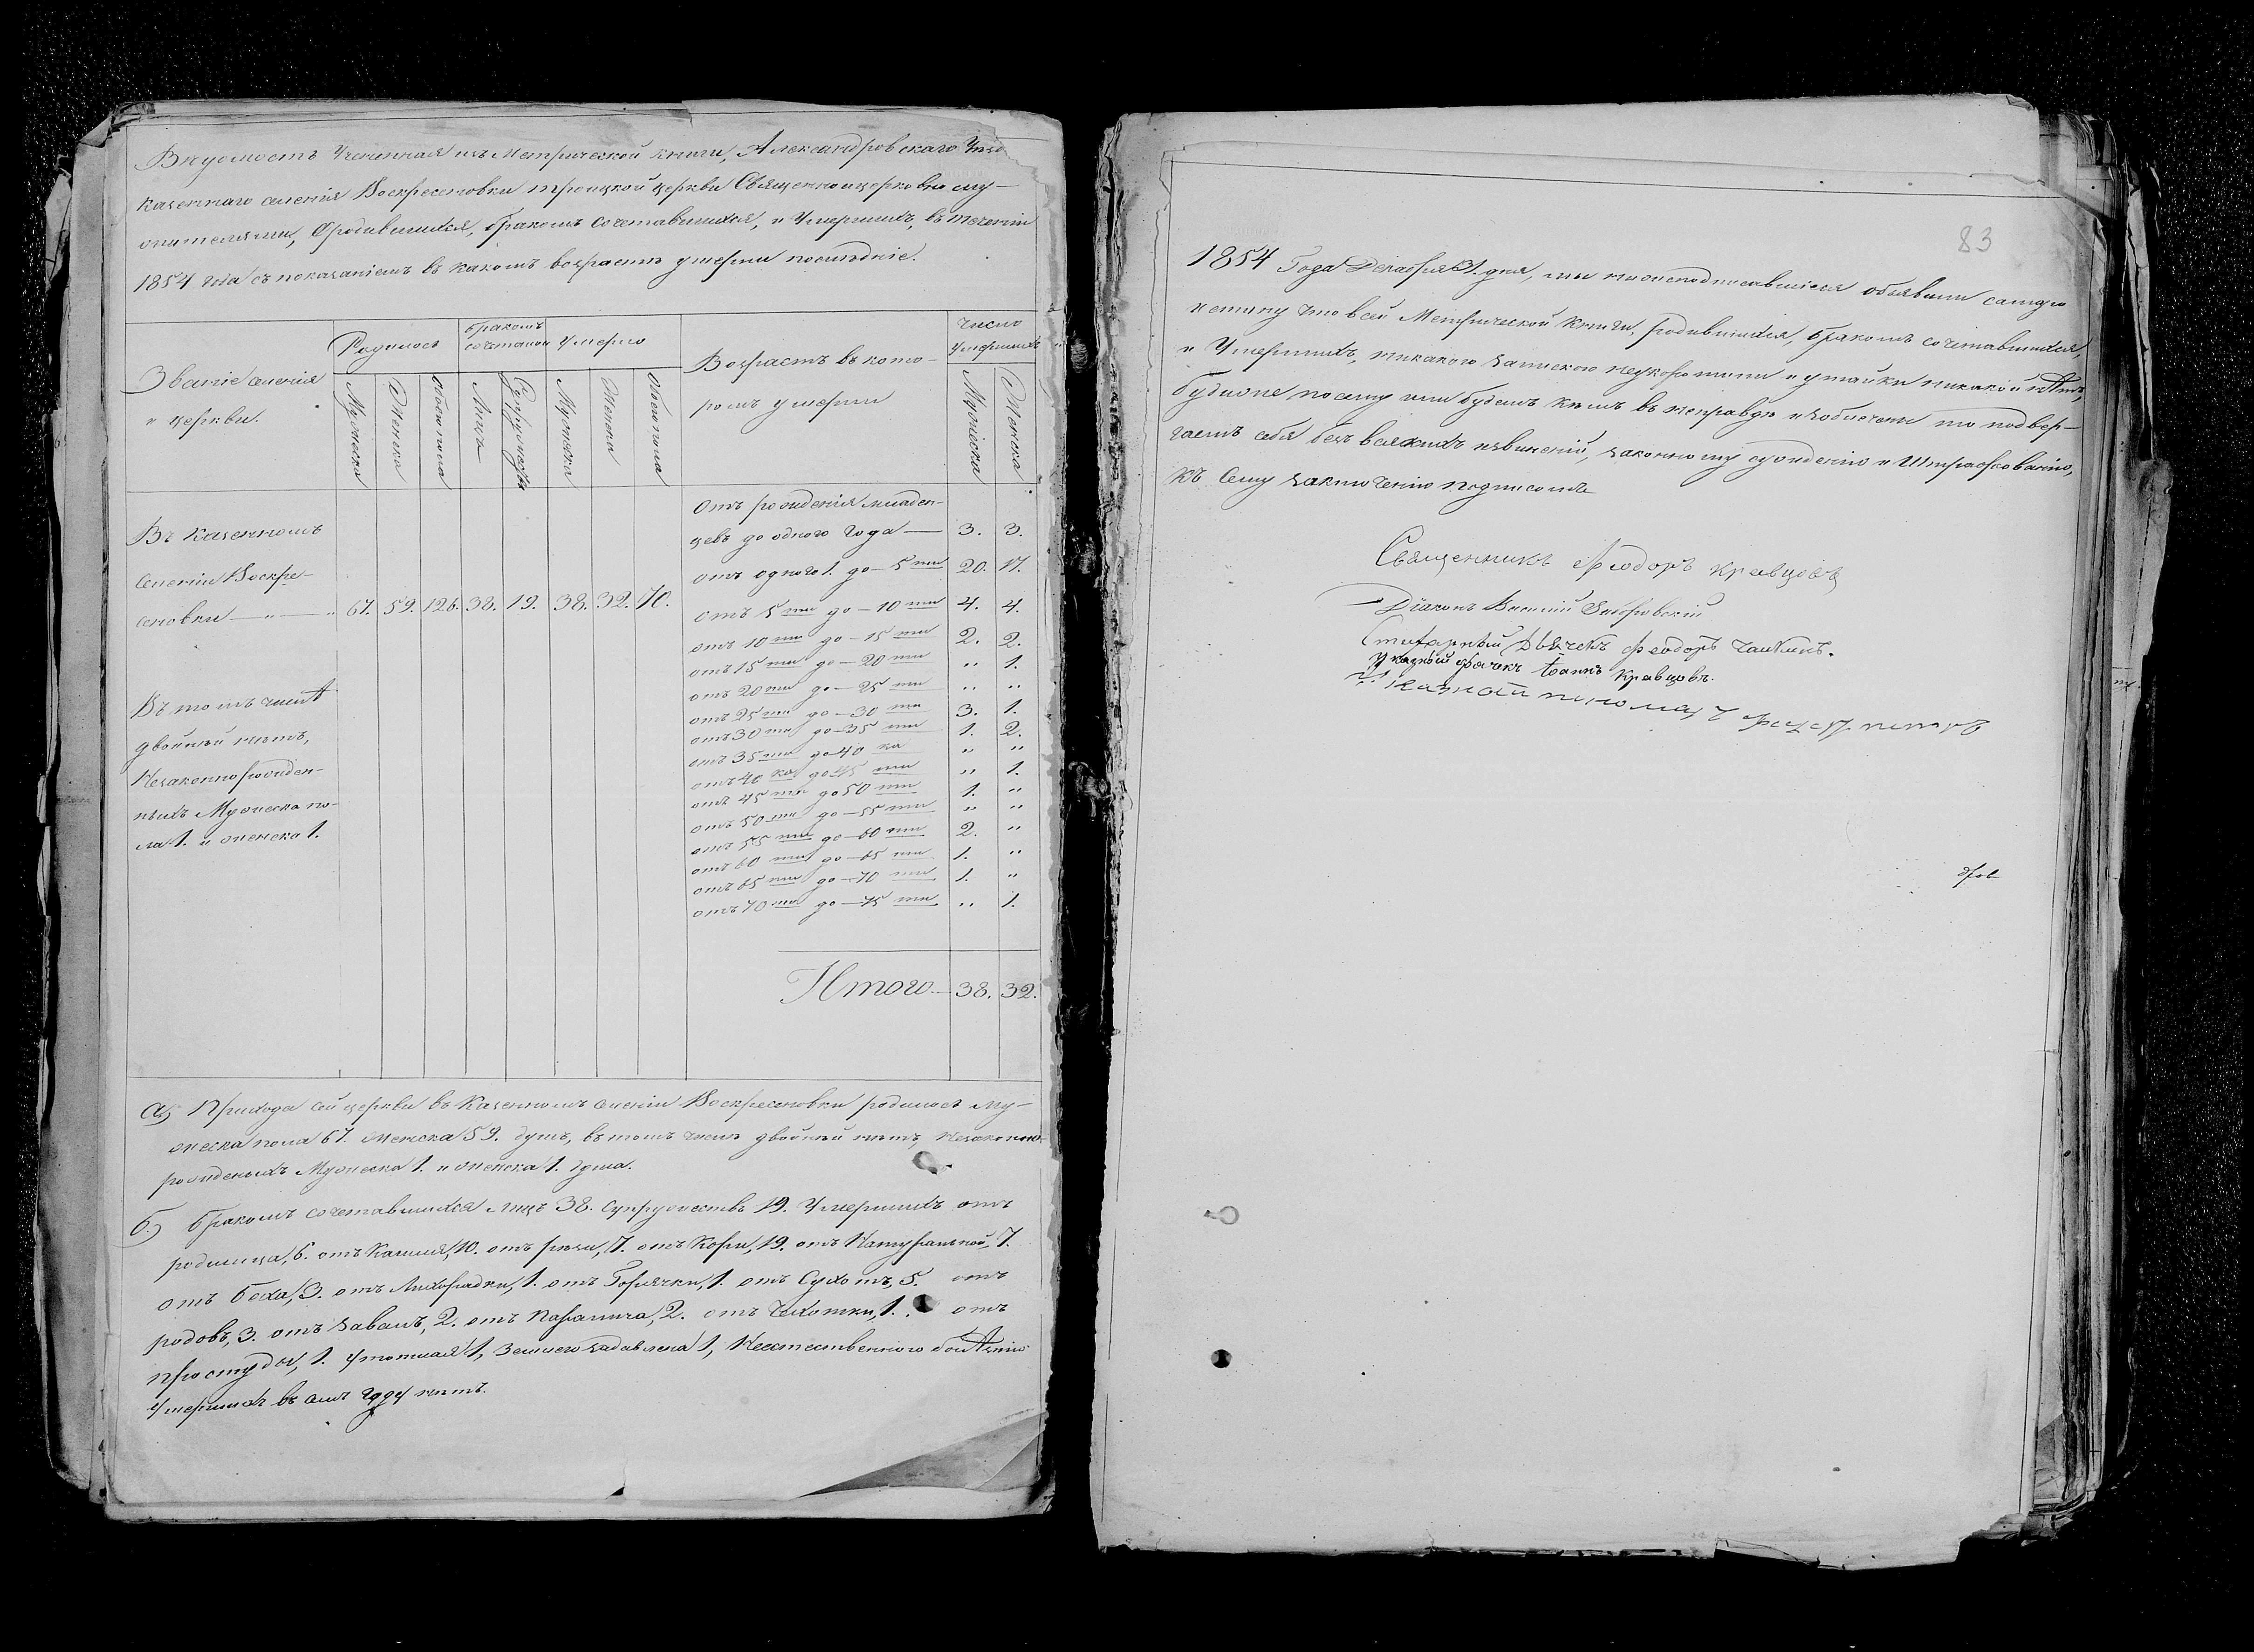 Вѣдомость Учененная изъ Метрической книги, Александровскаго
казеннаго селенія Воскресеновки троицкой церкви Священноцерковно слу-
жителями, Ородившихся, бракомъ сочетавшихся, и Умершихъ, въ теченіи
1854 года съ показаніемъ въ какомъ возрастѣ умерли послѣдніе.
Званіе селенія
и церкви.
Родилось
Мужеска
Женска
Обоего пола
бракомъ
сочетано
Лицъ
Супружествъ
Умерло
Мужеска
Женска
Обоего пола
Возрастъ въ кото-
ромъ умерли
Число
Умершихъ
Мужеска
Женска
Въ казенномъ
Селеніи Воскре-
сеновки — „ — 67. 59. 126. 38. 19. 38. 32. 70.
Въ томъ числѣ
двойный нѣтъ,
Незаконнорожден-
ныхъ Мужеска по-
ла 1. и женска 1.
Отъ рожденія младен-
цевъ до одного Года — 3. 3.
отъ одного 1. до — 5 ти 20. 17.
отъ 5 ти до — 10 ти 4. 4.
отъ 10 ти до — 15 ти 2. 2.
отъ 15 ти до — 20 ти „ 1.
отъ 20 ти до — 25 ти „ „
отъ 25 ти до — 30 ти 3. 1.
отъ 30 ти до — 35 ти 1. 2.
отъ 35 ти до 40 ка „ „
отъ 40 ка до 45 ти „ 1.
отъ 45 ти до 50 ти 1. „
отъ 50 ти до — 55 ти „ „
отъ 55 ти до — 60 ти 2. „
отъ 60 ти до — 65 ти 1. „
отъ 65 ти до — 70 ти 1. „
отъ 70 ти до — 75 ти „ 1.
Итого — 38. 32.
а) Прихода сей церкви въ Казенномъ Селеніи Воскресеновки родилось му-
жеска пола 67. женска 59. душъ, въ томъ числѣ двойный нѣтъ, Незаконно-
рожденыхъ Мужеска 1. и женска 1. душа.
б) бракомъ сочетавшихся лицъ 38. Супружествъ 19. Умершихъ отъ
родимца, 6. отъ Кашля, 10. отъ рѣзи, 7. отъ Кори, 19. отъ Натуральной, 7.
отъ боха, 3. отъ Лихорадки, 1. отъ Горячки, 1. отъ Сухотъ, 5. отъ
родовъ, 3. отъ завалъ, 2. отъ Паралича, 2. отъ Чахотки, 1. отъ
простуды, 1. Утопшая 1, Землею задавлена 1, Неестественного болѣзнію
Умершихъ въ семъ году нѣтъ.
83
1854 Года Декабря 31. дня, мы нижеподписавшіеся объявили самую
истину что въ сей Метрической Книги, родившихся, бракомъ сочетавшихся,
и Умершихъ, никакого запискою неукоротили и утайки никакой нѣтъ,
будже по сему или будемъ кѣмъ въ неправдѣ изобличены то подвер-
гаемъ себя безъ всякихъ извиненій, законному сужденію и Штрафованію,
Къ Сему заключенію подписомъ
Священникъ Феодоръ Кравцовъ
Діаконъ Василій
Стихарный Дьячекъ Феодоръ
Указный дьячекъ Іоаннъ Кравцовъ.
Указной пономарь